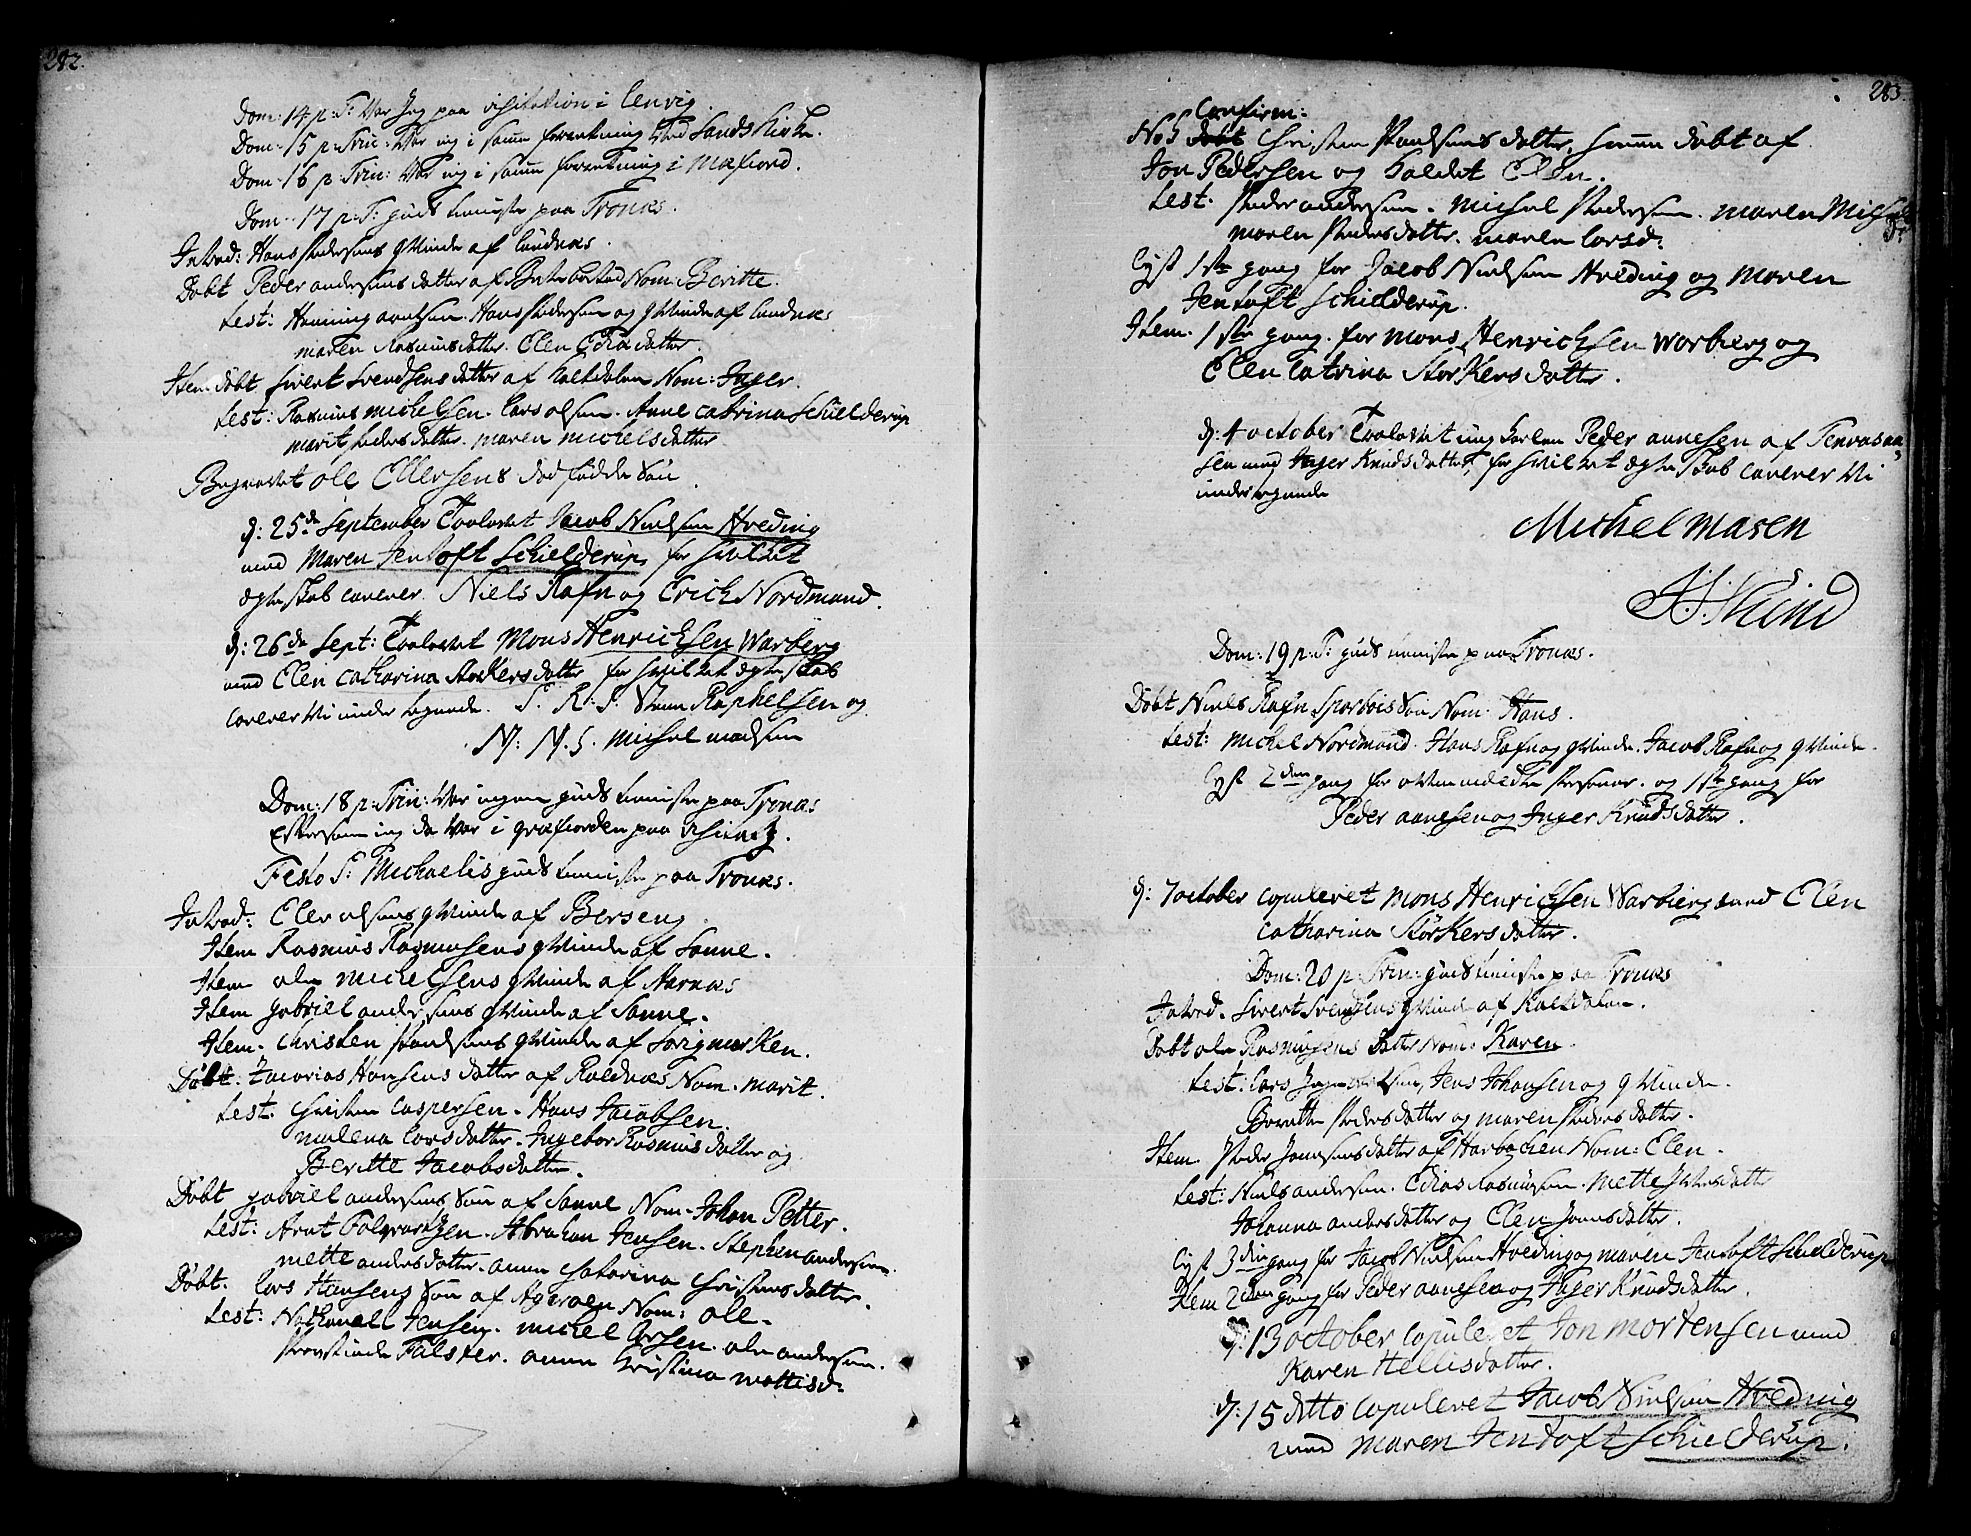 282.
Dom: 14 p: T: Var Jeg paa visitation i Lenvig.
Dom: 15 p: Trin: Var ieg i samme forretning ved Sands Kirke.
Dom: 16 p: Trin: Var ieg i samme forretning i Mafiord.
Dom: 17 p: T: guds tieniste paa Tronæs.
Introd: Hans Pedersens qvinde af Lundnæs.
Døbt Peder andersens datter af Nom: Beritte.
Test: Henning arntsen. Hans Pedersen og qvinde af Lundnæs
maren Rasmusdatter. Elen Elia datter.
Item døbt Sivert Svendsens datter af Kaltdalen Nom: Inger.
Test: Rasmus michelsen. Lars olsen. Anne Catrina Schielderup
marit Pedersdatter. maren michelsdatter
Begravet ole Ellersens død fødde Søn.
d: 25de September Trolovet Jacob Nielsen Hveding
med Maren Jentoft Schielderup, for hvilket
ægteskab caverer Niels Rafn og Erich Nordmand.
d: 26de Sept: Trolovet Mons Henrichsen Warberg
med Elen Catharina Storkersdatter for hvilket ægteskab
caverer Vi under tegnede. S. R. S. Steen Raphelsen og
M: M. S. Michel madsen
Dom: 18 p: Trin: Var ingen guds tieniste paa Tronæs
Eftersom ieg da var i Gratfiorden paa visitatz.
Festo S: Michaelis guds tieniste paa Tronæs.
Introd: Eler olsens qvinde af Berseng.
Item Rasmus Rasmusens qvinde af Sanne.
Item ole michelsens qvinde af Aarnæs
Item gabriel andersens qvinde af Sanne.
Item. Christen Paulsens qvinde af Sørigmarken.
Døbt: Zacarias Hansens datter af Roldnæs Nom. marit.
Test: Christen Caspersen. Hans Jacobsen.
malena Larsdatter. Ingebor Rasmusdatter og
Beritte Jacobsdatter.
Døbt gabriel andersens Søn af Sanne Nom. Johan Petter.
Test: Arnt Falqvartzen. Abraham Jensen. Stephen andersen.
mette andersdatter. anne Catarina Christensdatter.
Døbt. Lars Hansens Søn af Ageroen Nom: ole.
Test: Nathanall Jensen. michel Larsen. ole andersen.
Provstinde Falster. anne Christina mattisd:
283.
Confirm:
No 3 døbt Christen Paulsens datter, hiemme døbt af
Jon Pedersen og kaldet Elen.
Test. Peder andersen. Michel Pedersen. maren Michels
dr
maren Pedersdatter. maren Larsd:
Lyst 1ste gang for Jacob Nielsen Hveding og Maren
Jentoft Schielderup.
Item. 1ste gang. for mons Henrichsen Warberg og
Elen Catrina Storkersdatter.
d: 4 october Trolovet ung karlen Peder aanesen af Tenvasaa
sen med Inger Knudsdatter, for hvilket ægteskab caverer Vi
undertegnede
Michel masen
Dom: 19 p: T: guds tieniste paa Tronæs.
Døbt Niels Rafn Sparbois Søn Nom: Hans.
Test: michel Nordmand. Hans Rafn og qvinde. Jacob Rafn og qvinde.
Lyst 2den gang for oven meldte Persohner. og 1ste gang for
Peder aanesen og Inger Knudsdatter.
d: 7 october copuleret mons Henrichsen Warberg med Elen
Catharina Storkersdatter.
Dom: 20 p: Trin: guds tieniste paa Tronæs
Introd. Sivert Svendsens qvinde af Kaltdalen.
Døbt ole Rasmusens datter Nom: Karen.
Test: Lars Jens Johansen og qvinde.
Beritte Pedersdatter og maren Pedersdatter.
Item. Peder Jonsens datter af Harbachen Nom: Elen.
Test: Niels andersen. Elias Rasmusen. Mette Petersdatter
Johanna andersdatter og Elen Jonsdatter.
Lyst 3die gang for Jacob Nielsen Hveding og maren Jentoft Schielderup
Item 2den gang for Peder aanesen og Inger Knudsdatter.
d: 13 october copuleret Jon mortensen med
Karen Hellisdatter.
d: 15 dtto copuleret Jacob Nielsen Hveding
med maren Jentoft Schielderup.